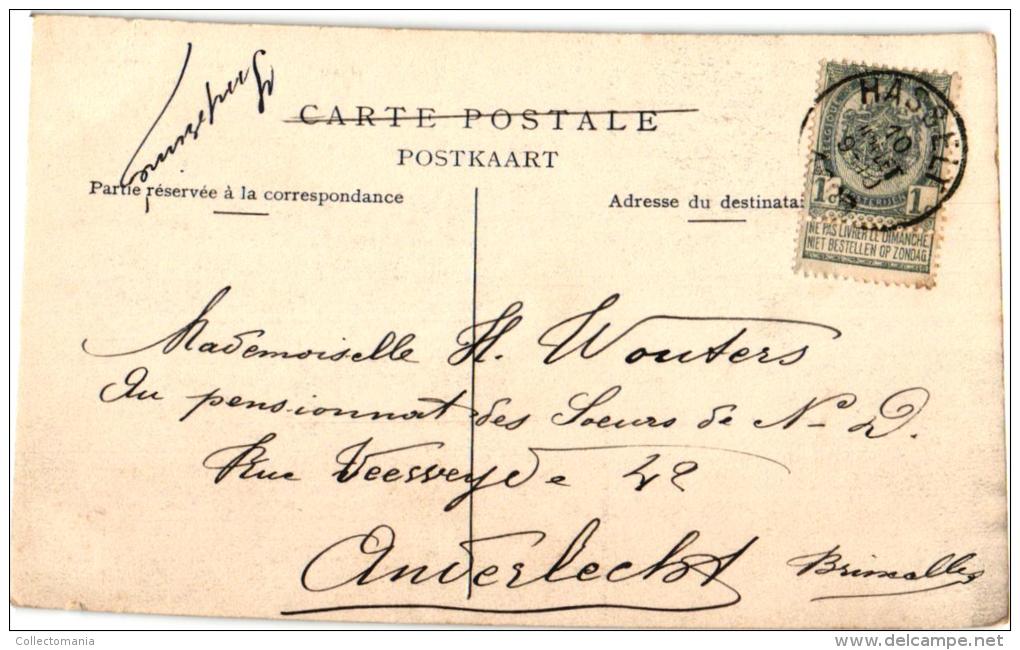 CARTE POSTALE
POSTKAART
Partie réservée à la correspondance
Adresse du destinatai
HASSELT
BELGIQUE
1 1
NE PAS LIVRER LE DIMANCHE
NIET BESTELLEN OP ZONDAG
Mademoiselle H. Wouters
Au pensionnat des Soeurs de N-D.
Rue Veeweyde 42
Anderlecht
Bruxelles
Collectomania
delcampe.net